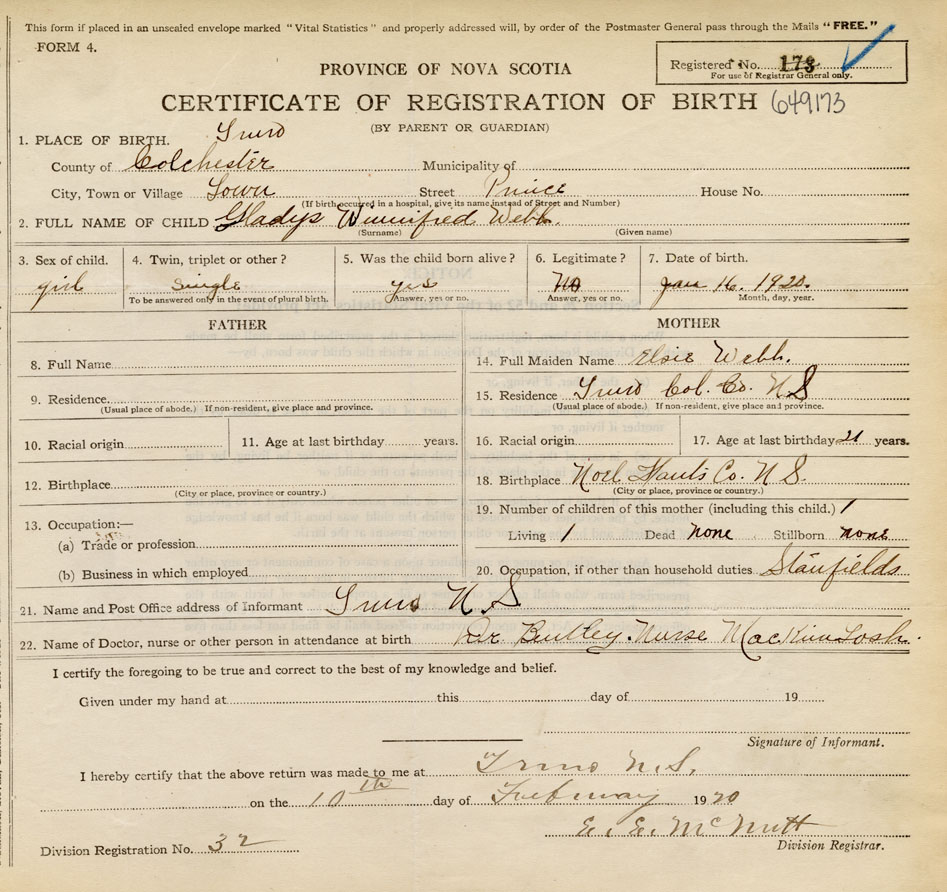 This form if placed in an unsealed envelope marked "Vital Statistics" and properly addressed will, by order of the Postmaster General pass through the Mails "FREE."
FORM 4.
Registered No. 173
For use of Registrar General only.
PROVINCE OF NOVA SCOTIA
CERTIFICATE OF REGISTRATION OF BIRTH 649173
(BY PARENT OR GUARDIAN)
1. PLACE OF BIRTH. Truro
County of Colchester Municipality of
City, Town or Village Town Street Prince House No.
(If birth occurred in a hospital, give its name instead of Street and Number)
2. FULL NAME OF CHILD Gladys Winnifred Webb.
(Surname) (Given name)
3. Sex of child. 4. Twin, triplet or other? 5. Was the child born alive? 6. Legitimate? 7. Date of birth.
girl Single yes no Jan 16. 1920.
To be answered only in the event of plural birth. Answer, yes or no. Answer, yes or no. Month, day, year.
FATHER MOTHER
8. Full Name 14. Full Maiden Name Elsie Webb.
9. Residence 15. Residence Truro Col. Co. N S
(Usual place of abode.) If non-resident, give place and province. (Usual place of abode.) If non-resident, give place and province.
10. Racial origin 11. Age at last birthday years. 16. Racial origin 17. Age at last birthday 21 years.
12. Birthplace 18. Birthplace Noel Hants Co. N S.
(City or place, province or country.) (City or place, province or country.)
13. Occupation:— 19. Number of children of this mother (including this child.) 1
(a) Trade or profession Living 1 Dead none Stillborn none
(b) Business in which employed 20. Occupation, if other than household duties. Stanfields
21. Name and Post Office address of Informant Truro N. S
22. Name of Doctor, nurse or other person in attendance at birth Dr Bentley. Nurse MacKinTosh.
I certify the foregoing to be true and correct to the best of my knowledge and belief.
Given under my hand at this day of 19
Signature of Informant.
I hereby certify that the above return was made to me at Truro N.S.
on the 10th day of February 1920
E. E. McNutt
Division Registration No. 32 Division Registrar.